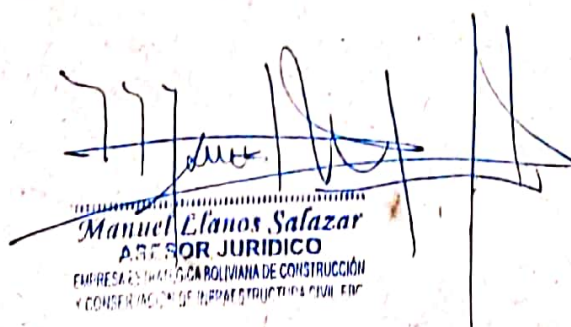 Manuel Llanos Salazar
ASESOR JURIDICO
EMPRESA ESTRATEGICA BOLIVIANA DE CONSTRUCCIÓN
Y CONSERVACION DE INFRAESTRUCTURA CIVIL EBC